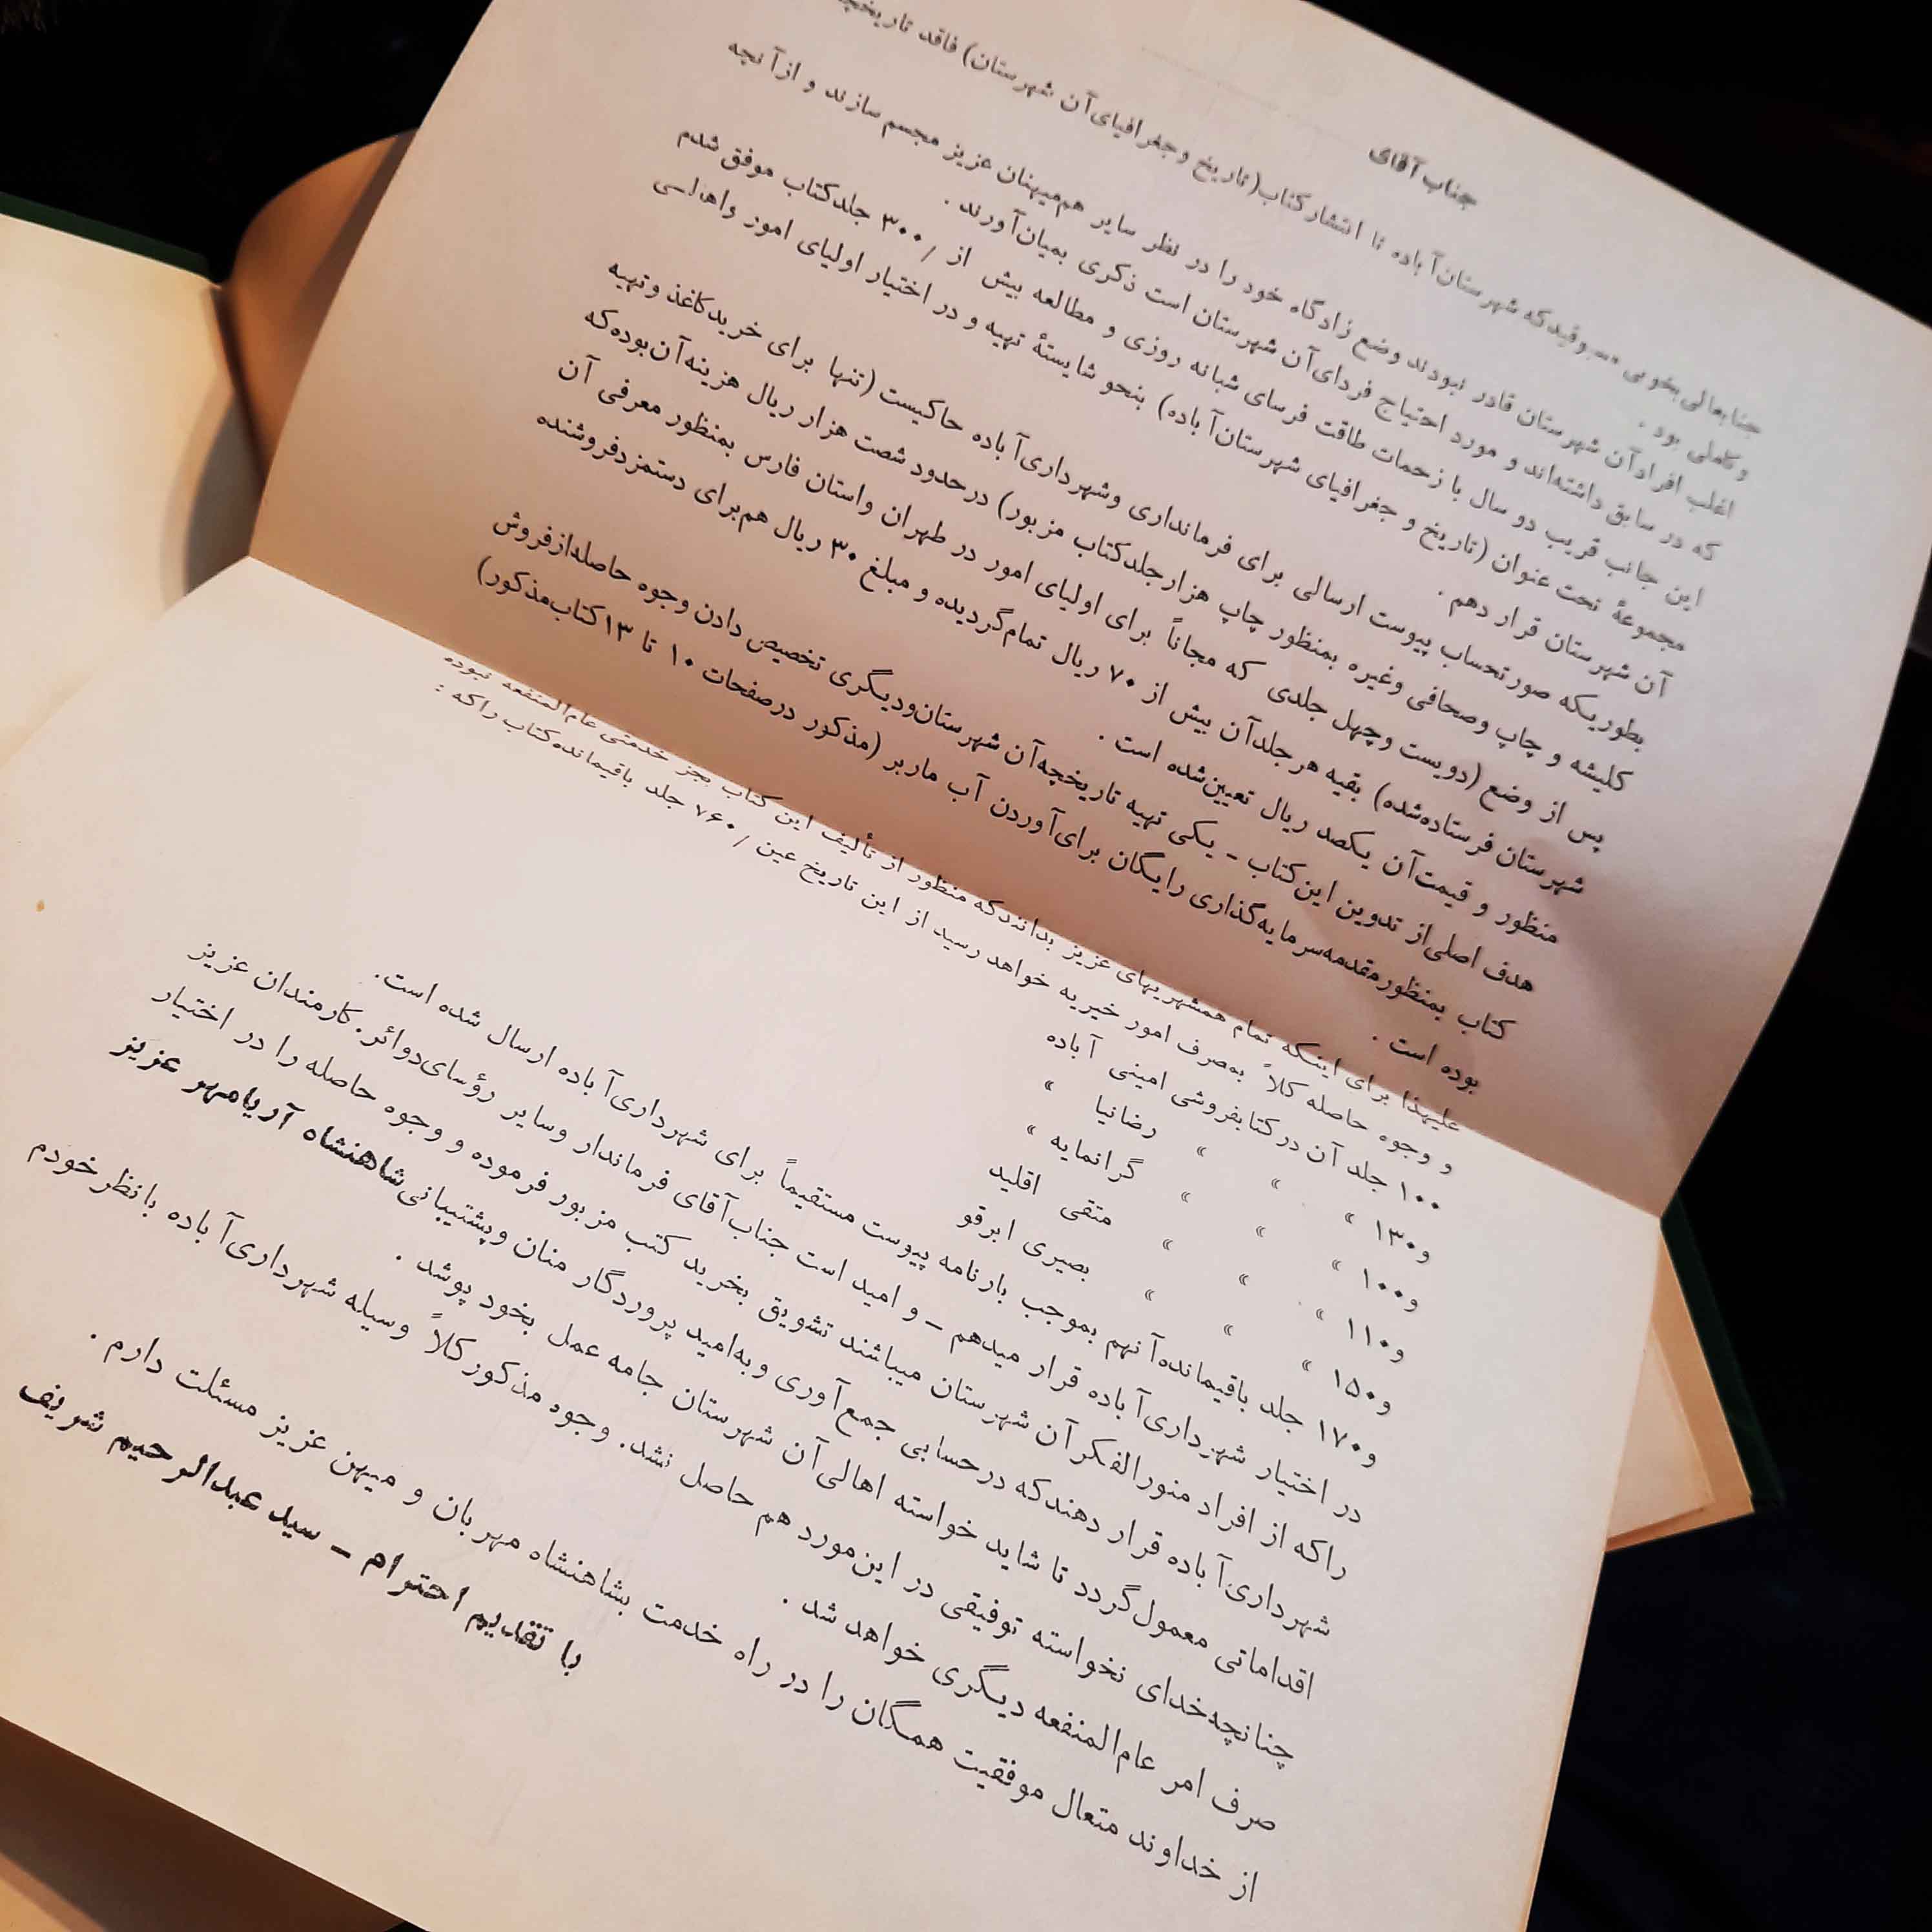 جناب آقای
جنابعالی بخوبی وقیدکه شهرستان آباده تا انتشارکتاب(تاریخ وجغرافیای آن شهرستان) فاقد تاریخچه
وکاملی بود .
اغلب افرادآن شهرستان قادر نبودند وضع زادگاه خود را در نظر سایر هم‌میهنان عزیز مجسم سازند و ازآنچه
که در سابق داشته‌اند و مورد احتیاج فردای‌آن شهرستان است ذکری بمیان‌آورند .
این جانب قریب دو سال با زحمات طاقت فرسای شبانه روزی و مطالعه بیش از /۳۰۰ جلدکتاب موفق شدم
مجموعهٔ تحت عنوان (تاریخ و جغرافیای شهرستان‌آباده) بنحو شایستهٔ تهیه و در اختیار اولیای امور واهالی
آن شهرستان قرار دهم .
بطوریکه صورتحساب پیوست ارسالی برای فرمانداری وشهرداری‌آباده حاکیست (تنها برای خریدکاغذ وتهیه
کلیشه و چاپ وصحافی وغیره بمنظور چاپ هزارجلدکتاب مزبور) درحدود شصت هزار ریال هزینه‌آن‌بوده‌که
پس از وضع (دویست وچهل جلدی که مجاناً برای اولیای امور در طهران واستان فارس بمنظور معرفی آن
شهرستان فرستاده‌شده) بقیه هرجلدآن بیش از ۷۰ ریال تمام‌گردیده و مبلغ ۳۰ ریال هم‌برای دستمزدفروشنده
منظور و قیمت‌آن یکصد ریال تعیین‌شده است .
هدف اصلی‌از تدوین این‌کتاب - یکی تهیه تاریخچه‌آن شهرستان‌ودیگری تخصیص دادن وجوه حاصله‌ازفروش
کتاب بمنظورمقدمه‌سرمایه‌گذاری رایگان برای‌آوردن آب ماربر (مذکور درصفحات ۱۰ تا ۱۳کتاب‌مذکور)
بوده است .
علیهذا برای اینکه تمام همشهریهای عزیز بدانندکه منظور از تألیف این کتاب بجز خدمتی عام‌المنفعه نبوده
و وجوه حاصله کلاً به‌صرف امور خیریه خواهد رسید از این تاریخ عین /۷۶۰ جلد باقیمانده‌کتاب راکه :
۱۰۰ جلد آن درکتابفروشی امینی آباده
و۱۳۰ » » » رضانیا »
و۱۰۰ » » » گرانمایه »
و۱۱۰ » » » متقی اقلید
و۱۵۰ » » » بصیری ابرقو
و۱۷۰ جلد باقیمانده‌آنهم بموجب بارنامه پیوست مستقیماً برای شهرداری‌آباده ارسال شده است.
در اختیار شهرداری‌آباده قرار میدهم - و امید است جناب‌آقای فرماندار وسایر رؤسای‌دوائر.کارمندان عزیز
راکه از افراد منورالفکرآن شهرستان میباشند تشویق بخرید کتب مزبور فرموده و وجوه حاصله را در اختیار
شهرداری‌آباده قرار دهندکه درحسابی جمع‌آوری وبه‌امید پروردگار منان وپشتیبانی‌شاهنشاه آریامهر عزیز
اقداماتی معمول‌گردد تا شاید خواسته اهالی‌آن شهرستان جامه عمل بخود پوشد .
چنانچه‌خدای نخواسته توفیقی در این‌مورد هم حاصل نشد. وجوه مذکورکلاً وسیله شهرداری‌آباده بانظرخودم
صرف امر عام‌المنفعه دیگری خواهد شد .
از خداوند متعال موفقیت همگان را در راه خدمت بشاهنشاه مهربان و میهن عزیز مسئلت دارم .
با تقدیم احترام - سید عبدالرحیم شریف